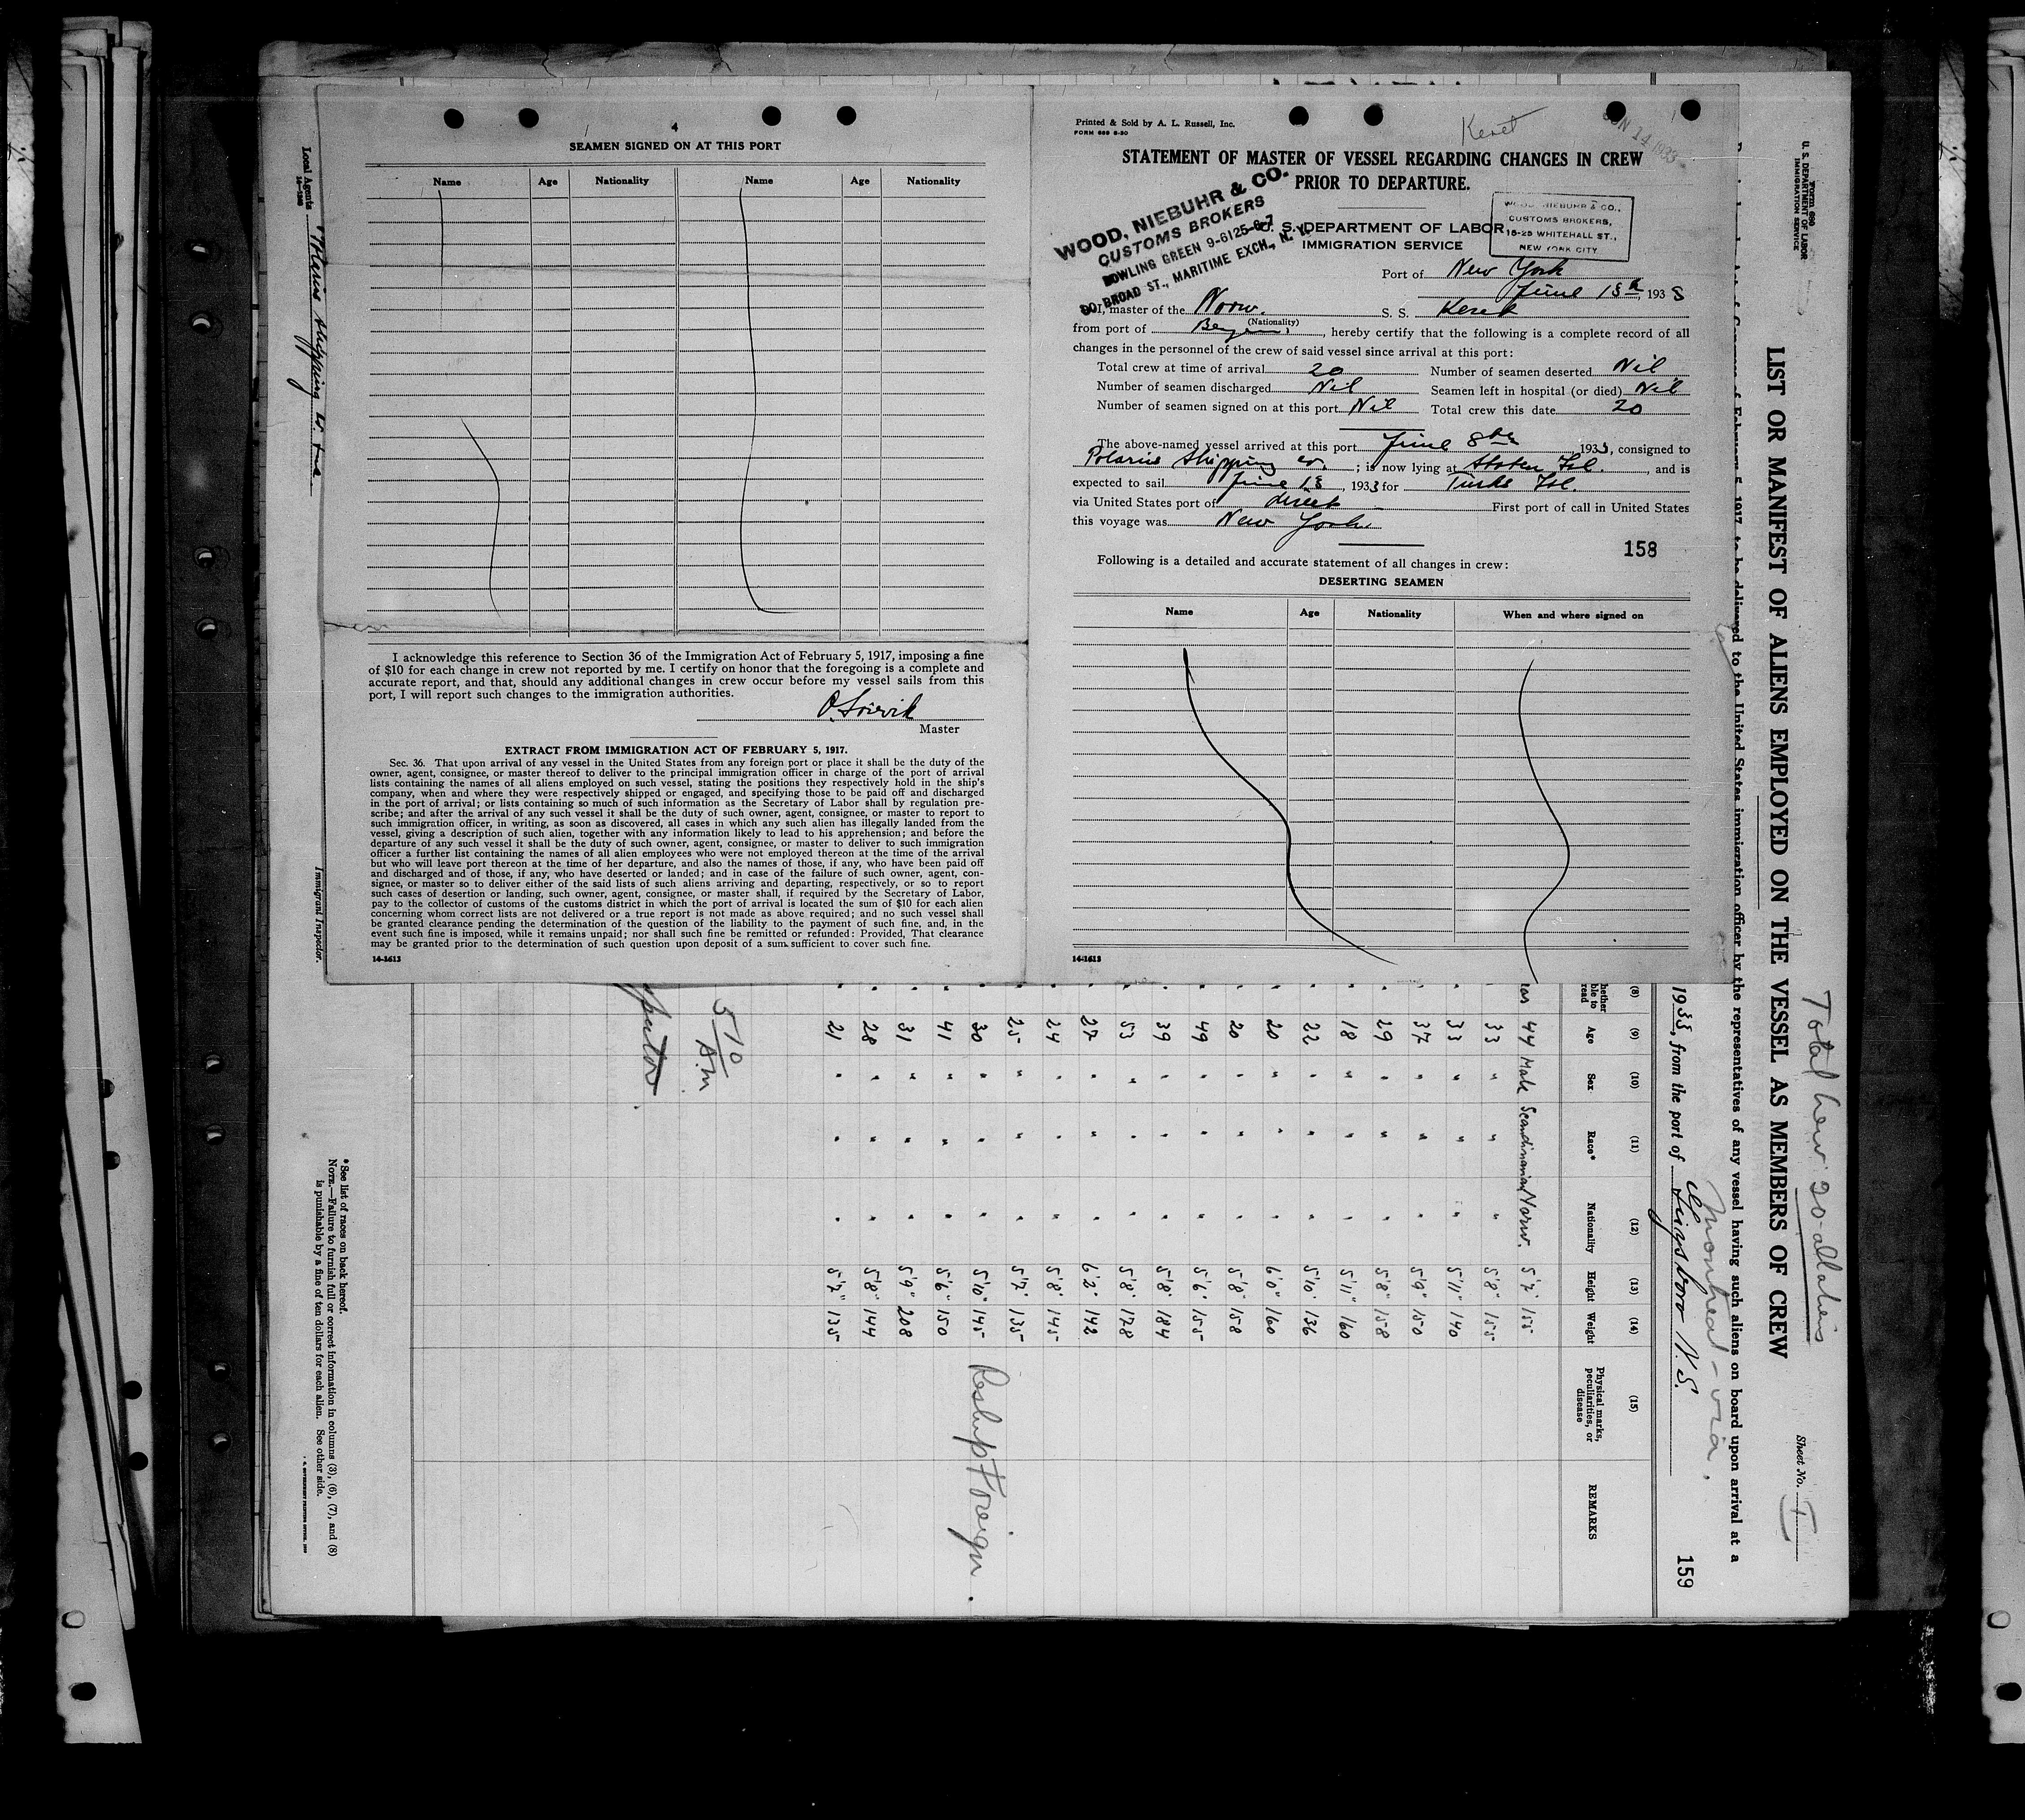 4
SEAMEN SIGNED ON AT THIS PORT
Name Age Nationality Name Age Nationality
I acknowledge this reference to Section 36 of the Immigration Act of February 5, 1917, imposing a fine
of $10 for each change in crew not reported by me. I certify on honor that the foregoing is a complete and
accurate report, and that, should any additional changes in crew occur before my vessel sails from this
port, I will report such changes to the immigration authorities.
Master
EXTRACT FROM IMMIGRATION ACT OF FEBRUARY 5, 1917.
Sec. 36. That upon arrival of any vessel in the United States from any foreign port or place it shall be the duty of the
owner, agent, consignee, or master thereof to deliver to the principal immigration officer in charge of the port of arrival
lists containing the names of all aliens employed on such vessel, stating the positions they respectively hold in the ship's
company, when and where they were respectively shipped or engaged, and specifying those to be paid off and discharged
in the port of arrival; or lists containing so much of such information as the Secretary of Labor shall by regulation pre-
scribe; and after the arrival of any such vessel it shall be the duty of such owner, agent, consignee, or master to report to
such immigration officer, in writing, as soon as discovered, all cases in which any such alien has illegally landed from the
vessel, giving a description of such alien, together with any information likely to lead to his apprehension; and before the
departure of any such vessel it shall be the duty of such owner, agent, consignee, or master to deliver to such immigration
officer a further list containing the names of all alien employees who were not employed thereon at the time of the arrival
but who will leave port thereon at the time of her departure, and also the names of those, if any, who have been paid off
and discharged and of those, if any, who have deserted or landed; and in case of the failure of such owner, agent, con-
signee, or master so to deliver either of the said lists of such aliens arriving and departing, respectively, or so to report
such cases of desertion or landing, such owner, agent, consignee, or master shall, if required by the Secretary of Labor,
pay to the collector of customs of the customs district in which the port of arrival is located the sum of $10 for each alien
concerning whom correct lists are not delivered or a true report is not made as above required; and no such vessel shall
be granted clearance pending the determination of the question of the liability to the payment of such fine, and, in the
event such fine is imposed, while it remains unpaid; nor shall such fine be remitted or refunded: Provided, That clearance
may be granted prior to the determination of such question upon deposit of a sum sufficient to cover such fine.
14-1613
Printed & Sold by A. L. Russell, Inc.
FORM 689 6-30
Keret
JUN 14 1933
STATEMENT OF MASTER OF VESSEL REGARDING CHANGES IN CREW
PRIOR TO DEPARTURE.
WOOD, NIEBUHR & CO.
CUSTOMS BROKERS
BOWLING GREEN 9-6125-6-7
80 BROAD ST., MARITIME EXCH., N. Y.
U. S. DEPARTMENT OF LABOR
IMMIGRATION SERVICE
WOOD, NIEBUHR & CO.,
CUSTOMS BROKERS,
15-25 WHITEHALL ST.,
NEW YORK CITY
Port of New York
June 13th, 1933
I, master of the Norw. S. S. Keret
(Nationality)
from port of Bergen, hereby certify that the following is a complete record of all
changes in the personnel of the crew of said vessel since arrival at this port:
Total crew at time of arrival 20 Number of seamen deserted Nil
Number of seamen discharged Nil Seamen left in hospital (or died) Nil
Number of seamen signed on at this port Nil Total crew this date 20
The above-named vessel arrived at this port June 8th 1933, consigned to
Polarius Shipping Co. ; is now lying at Staten Isl. , and is
expected to sail June 13 , 1933 for Turks Isl.
via United States port of direct First port of call in United States
this voyage was New York
158
Following is a detailed and accurate statement of all changes in crew:
DESERTING SEAMEN
Name Age Nationality When and where signed on
14-1613
Form 680
U. S. DEPARTMENT OF LABOR
IMMIGRATION SERVICE
LIST OR MANIFEST OF ALIENS EMPLOYED ON THE VESSEL AS MEMBERS OF CREW
Sheet No. I
Total crew 20 - all aliens
to be delivered to the United States immigration officer by the representatives of any vessel having such aliens on board upon arrival at a
Montreal - via
1933, from the port of N.S.
159
(8) (9) (10) (11) (12) (13) (14) (15)
Age Sex Race* Nationality Height Weight Physical marks, peculiarities, or disease REMARKS
44 Male Scandinavian Norw. 5'7" 155
33 " " " 5'8" 155
33 " " " 5'11" 140
37 " " " 5'9" 150
29 " " " 5'8" 158
18 " " " 5'11" 160
22 " " " 5'10" 136
20 " " " 6'0" 160
20 " " " 5'8" 158
49 " " " 5'6" 155
39 " " " 5'8" 184
53 " " " 5'8" 178
27 " " " 6'2" 142
24 " " " 5'8" 145
25 " " " 5'7" 135
30 " " " 5'10" 145 Reship Foreign.
41 " " " 5'6" 150
31 " " " 5'9" 208
28 " " " 5'8" 144
21 " " " 5'7" 135
5/10
A.M.
*See list of races on back hereof.
NOTE.—Failure to furnish full or correct information in columns (3), (6), (7), and (8)
is punishable by a fine of ten dollars for each alien. See other side.
Local Agents
Immigrant Inspector.